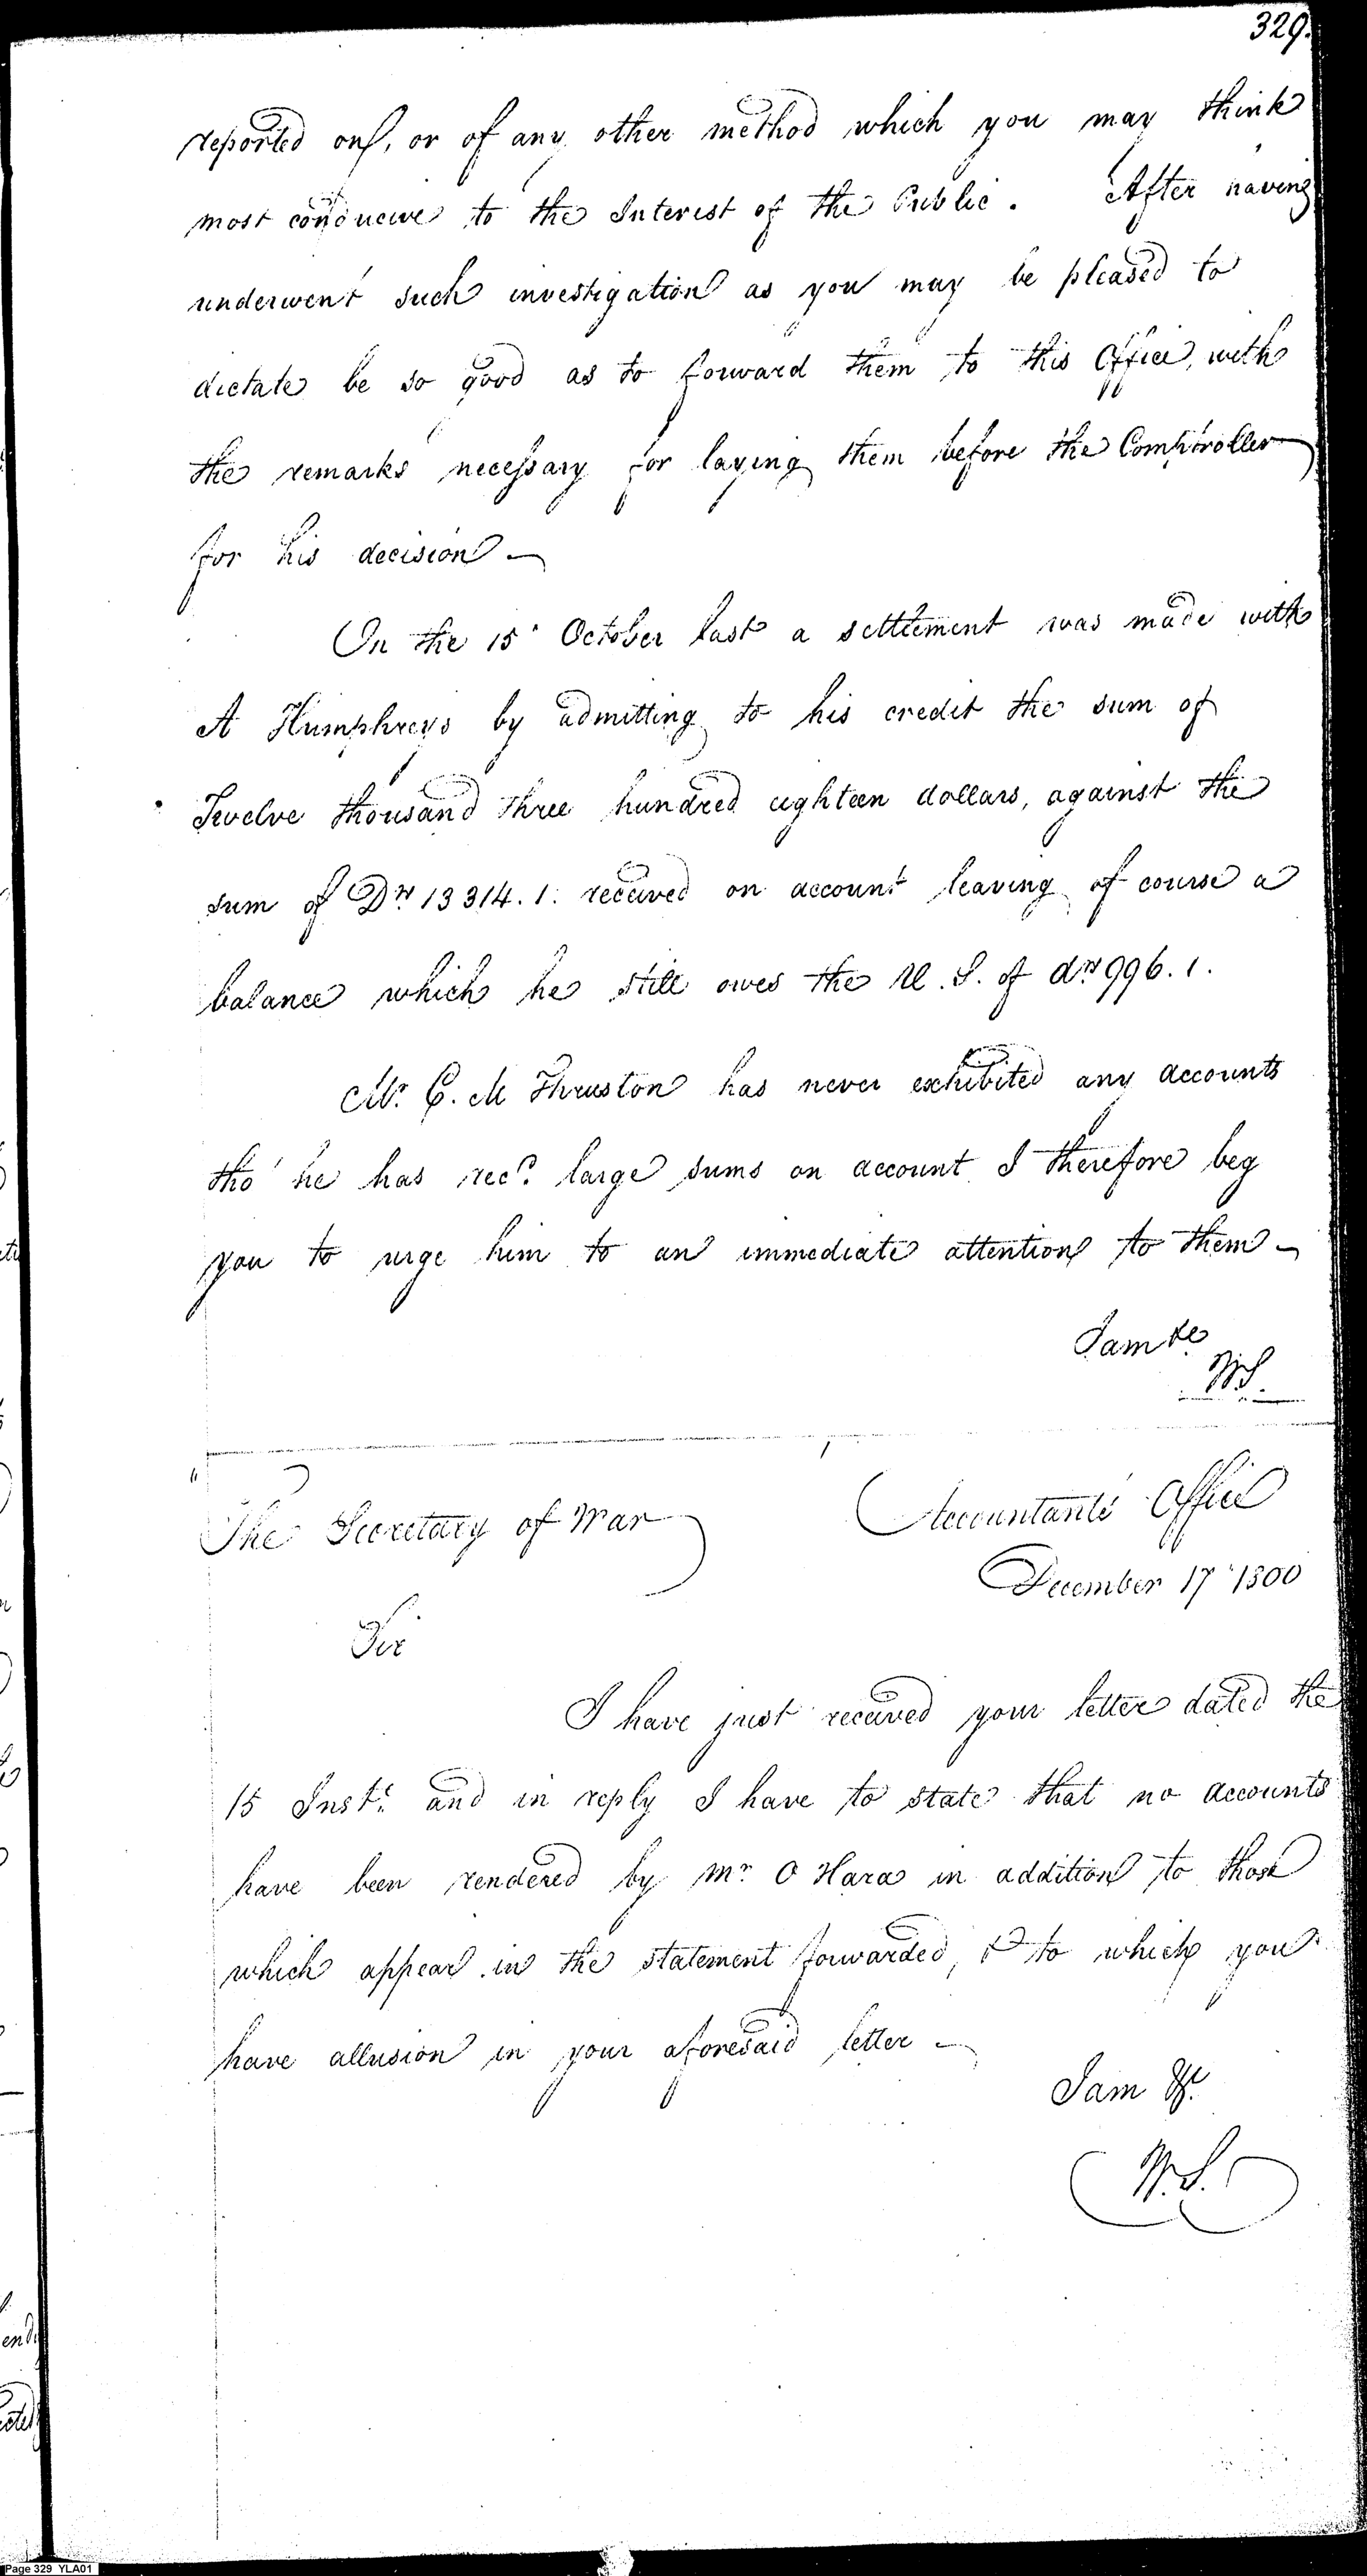 329.
reported on, or of any other method which you may think
most conducive to the Interest of the Public. After having
underwent such investigation as you may be pleased to
dictate be so good as to forward them to this Office, with
the remarks necessary for laying them before the Comptroller
for his decision —
On the 15 October last a settlement was made with
A Humphreys by admitting to his credit the sum of
Twelve thousand three hundred eighteen dollars, against the
sum of Drs 13314.1. received on account leaving of course a
balance which he still owes the U.S. of drs 996.1.
Mr. C. M Thruston has never exhibited any accounts
tho' he has recd. large sums on account I therefore beg
you to urge him to an immediate attention to them —
I am &c
W.S.
The Secretary of War
Accountants Office
December 17 1800
Sir
I have just received your letter dated the
15 Instt. and in reply I have to state that no accounts
have been rendered by Mr. O Hara in addition to those
which appear in the statement forwarded, & to which you
have allusion in your aforesaid letter —
I am &c.
W.S.
Page 329 YLA01